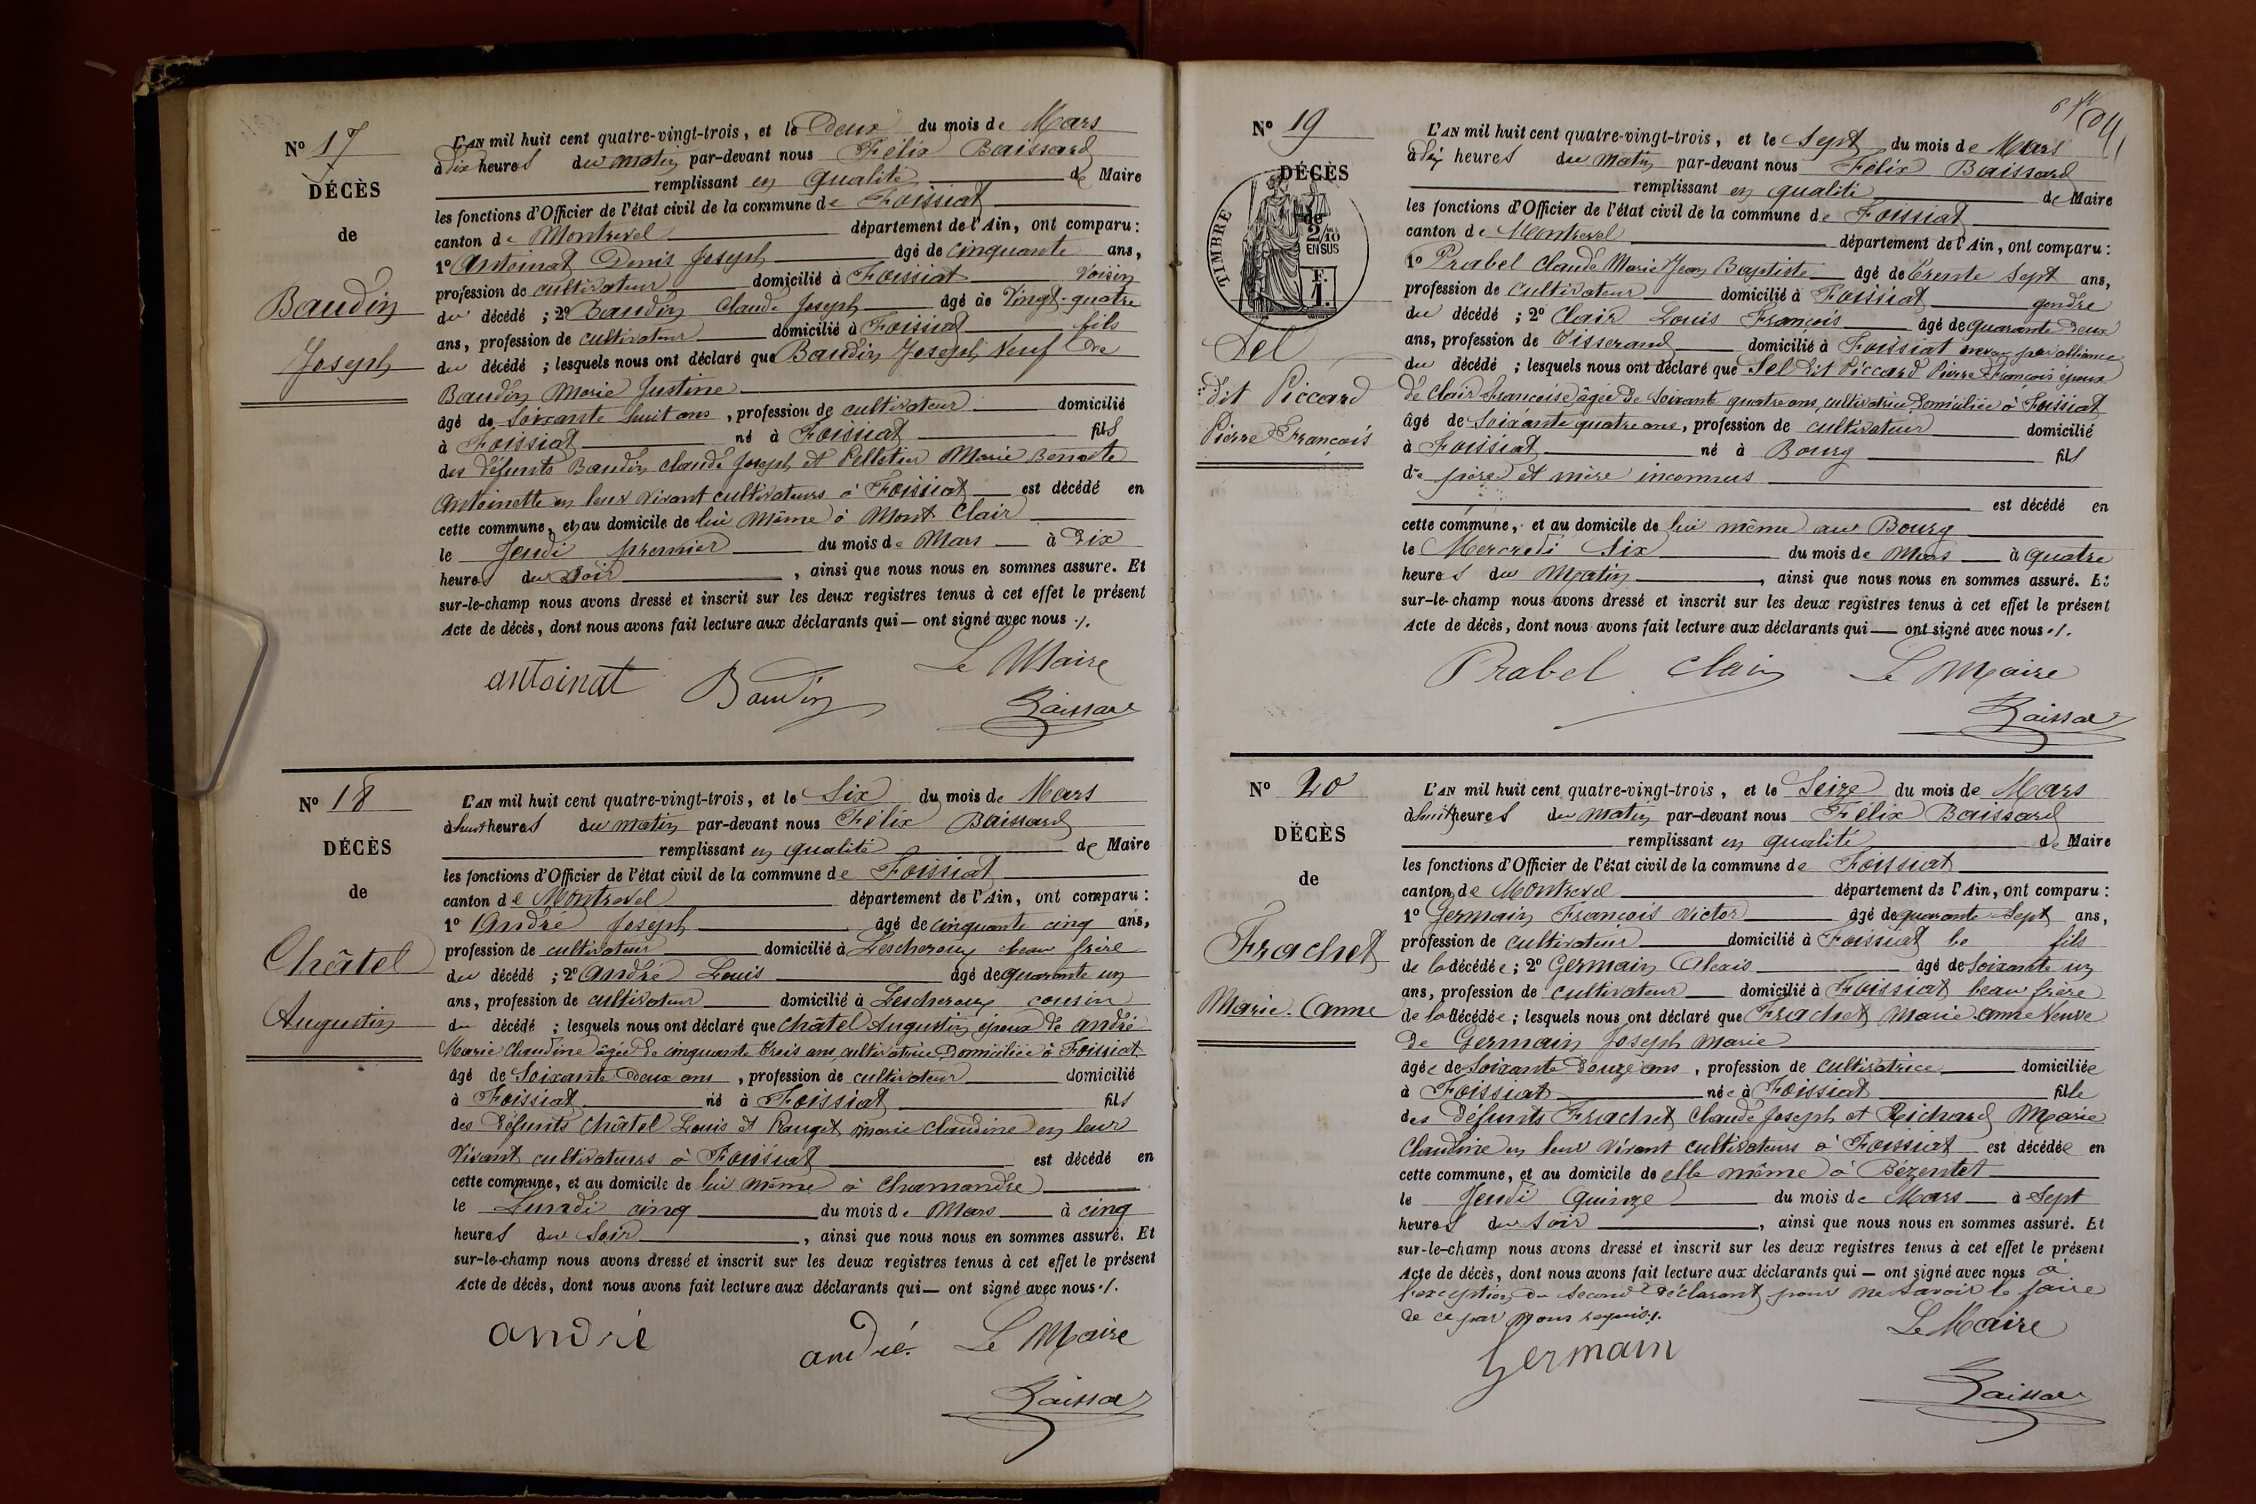 N° 17
DÉCÈS
de
Baudin
Joseph
L'AN mil huit cent quatre-vingt-trois, et le Deux du mois de Mars
à dix heures du matin par-devant nous Félix Baissard
remplissant en qualité de Maire
les fonctions d'Officier de l'état civil de la commune de Foissiat
canton de Montrevel département de l'Ain, ont comparu :
1° Antoinat Denis Joseph âgé de cinquante ans,
profession de cultivateur domicilié à Foissiat voisin
du décédé ; 2° Baudin Claude Joseph âgé de Vingt-quatre
ans, profession de cultivateur domicilié à Foissiat fils
du décédé ; lesquels nous ont déclaré que Baudin Joseph Veuf de
Baudin Marie Justine
âgé de Soixante huit ans, profession de cultivateur domicilié
à Foissiat né à Foissiat fils
des défunts Baudin Claude Joseph et Pelletier Marie Benoite
Antoinette en leur vivant cultivateurs à Foissiat est décédé en
cette commune, et au domicile de lui même à Mont Clair
le Jeudi premier du mois de Mars à Dix
heures du Soir, ainsi que nous nous en sommes assuré. Et
sur-le-champ nous avons dressé et inscrit sur les deux registres tenus à cet effet le présent
Acte de décès, dont nous avons fait lecture aux déclarants qui — ont signé avec nous ./.
antoinat Baudin Le Maire
Baissard
N° 18
DÉCÈS
de
Châtel
Augustin
L'AN mil huit cent quatre-vingt-trois, et le Six du mois de Mars
à huit heures du matin par-devant nous Félix Baissard
remplissant en qualité de Maire
les fonctions d'Officier de l'état civil de la commune de Foissiat
canton de Montrevel département de l'Ain, ont comparu :
1° André Joseph âgé de cinquante cinq ans,
profession de cultivateur domicilié à Lescheroux beau frère
du décédé ; 2° André Louis âgé de quarante un
ans, profession de cultivateur domicilié à Lescheroux cousin
du décédé ; lesquels nous ont déclaré que Châtel Augustin époux de André
Marie Claudine âgée de cinquante trois ans cultivatrice Domiciliée à Foissiat
âgé de Soixante Deux ans, profession de cultivateur domicilié
à Foissiat né à Foissiat fils
des défunts Châtel Louis et Rouget Marie Claudine en leur
Vivant cultivateurs à Foissiat est décédé en
cette commune, et au domicile de lui même à Chamandre
le Lundi cinq du mois de Mars à cinq
heures du Soir, ainsi que nous nous en sommes assuré. Et
sur-le-champ nous avons dressé et inscrit sur les deux registres tenus à cet effet le présent
Acte de décès, dont nous avons fait lecture aux déclarants qui — ont signé avec nous ./.
andré andré. Le Maire
Baissard
N° 19
DÉCÈS
de
TIMBRE
2/10
EN SUS
F.
1.
Sel
dit Piccard
Pierre François
L'AN mil huit cent quatre-vingt-trois, et le Sept du mois de Mars
à Six heures du Matin par-devant nous Félix Baissard
remplissant en qualité de Maire
les fonctions d'Officier de l'état civil de la commune de Foissiat
canton de Montrevel département de l'Ain, ont comparu :
1° Prabel Claude Marie Jean Baptiste âgé de Trente Sept ans,
profession de cultivateur domicilié à Foissiat gendre
du décédé ; 2° Clair Louis François âgé de quarante Deux
ans, profession de Tisserand domicilié à Foissiat neveu par alliance
du décédé ; lesquels nous ont déclaré que Sel dit Piccard Pierre François époux
de Clair Françoise âgée de soixante quatre ans, cultivatrice Domiciliée à Foissiat
âgé de Soixante quatre ans, profession de cultivateur domicilié
à Foissiat né à Bourg fils
de père et mère inconnus
est décédé en
cette commune, et au domicile de lui même au Bourg
le Mercredi Six du mois de Mars à quatre
heures du Matin, ainsi que nous nous en sommes assuré. Et
sur-le-champ nous avons dressé et inscrit sur les deux registres tenus à cet effet le présent
Acte de décès, dont nous avons fait lecture aux déclarants qui — ont signé avec nous ./.
Prabel Clair Le Maire
Baissard
N° 20
DÉCÈS
de
Frachet
Marie-Anne
L'AN mil huit cent quatre-vingt-trois, et le Seize du mois de Mars
à huit heures du Matin par-devant nous Félix Baissard
remplissant en qualité de Maire
les fonctions d'Officier de l'état civil de la commune de Foissiat
canton de Montrevel département de l'Ain, ont comparu :
1° Germain François Victor âgé de quarante Sept ans,
profession de cultivateur domicilié à Foissiat le fils
de la décédée ; 2° Germain Alexis âgé de Soixante un
ans, profession de cultivateur domicilié à Foissiat beau frère
de la décédée ; lesquels nous ont déclaré que Frachet Marie-Anne Veuve
de Germain Joseph Marie
âgée de Soixante Douze ans, profession de cultivatrice domiciliée
à Foissiat née à Foissiat fille
des défunts Frachet Claude Joseph et Richard Marie
Claudine en leur vivant cultivateurs à Foissiat est décédée en
cette commune, et au domicile de elle même à Bézentet
le Jeudi Quinze du mois de Mars à Sept
heures du Soir, ainsi que nous nous en sommes assuré. Et
sur-le-champ nous avons dressé et inscrit sur les deux registres tenus à cet effet le présent
Acte de décès, dont nous avons fait lecture aux déclarants qui — ont signé avec nous à
l'exception du second déclarant pour ne savoir le faire
de ce par nous requis ./.
Germain Le Maire
Baissard